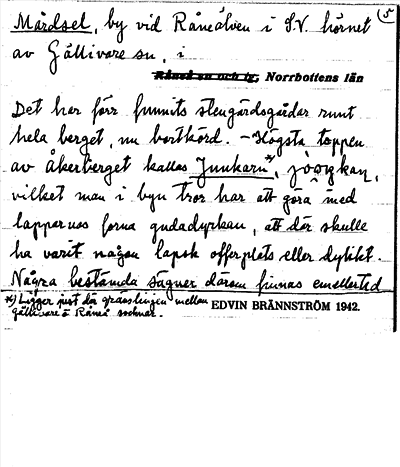 Mårdsel, by vid Råneälven i S.V. hörnet
5
av Gällivare sn, i
Råneå sn och tg, Norrbottens län
Det har förr funnits stengärdsgårdar runt
hela berget, nu bortkörd. – Högsta toppen
av åkerberget kallas Junkarn*),
vilket man i byn tror har att göra med
lapparnas forna gudadyrkan, att där skulle
ha varit någon lapsk offerplats eller dylikt.
Några bestämda sägner därom finnas emellertid
*) Ligger just där gränslinjen mellan
Gällivare o Råneå socknar.
EDVIN BRÄNNSTRÖM 1942.